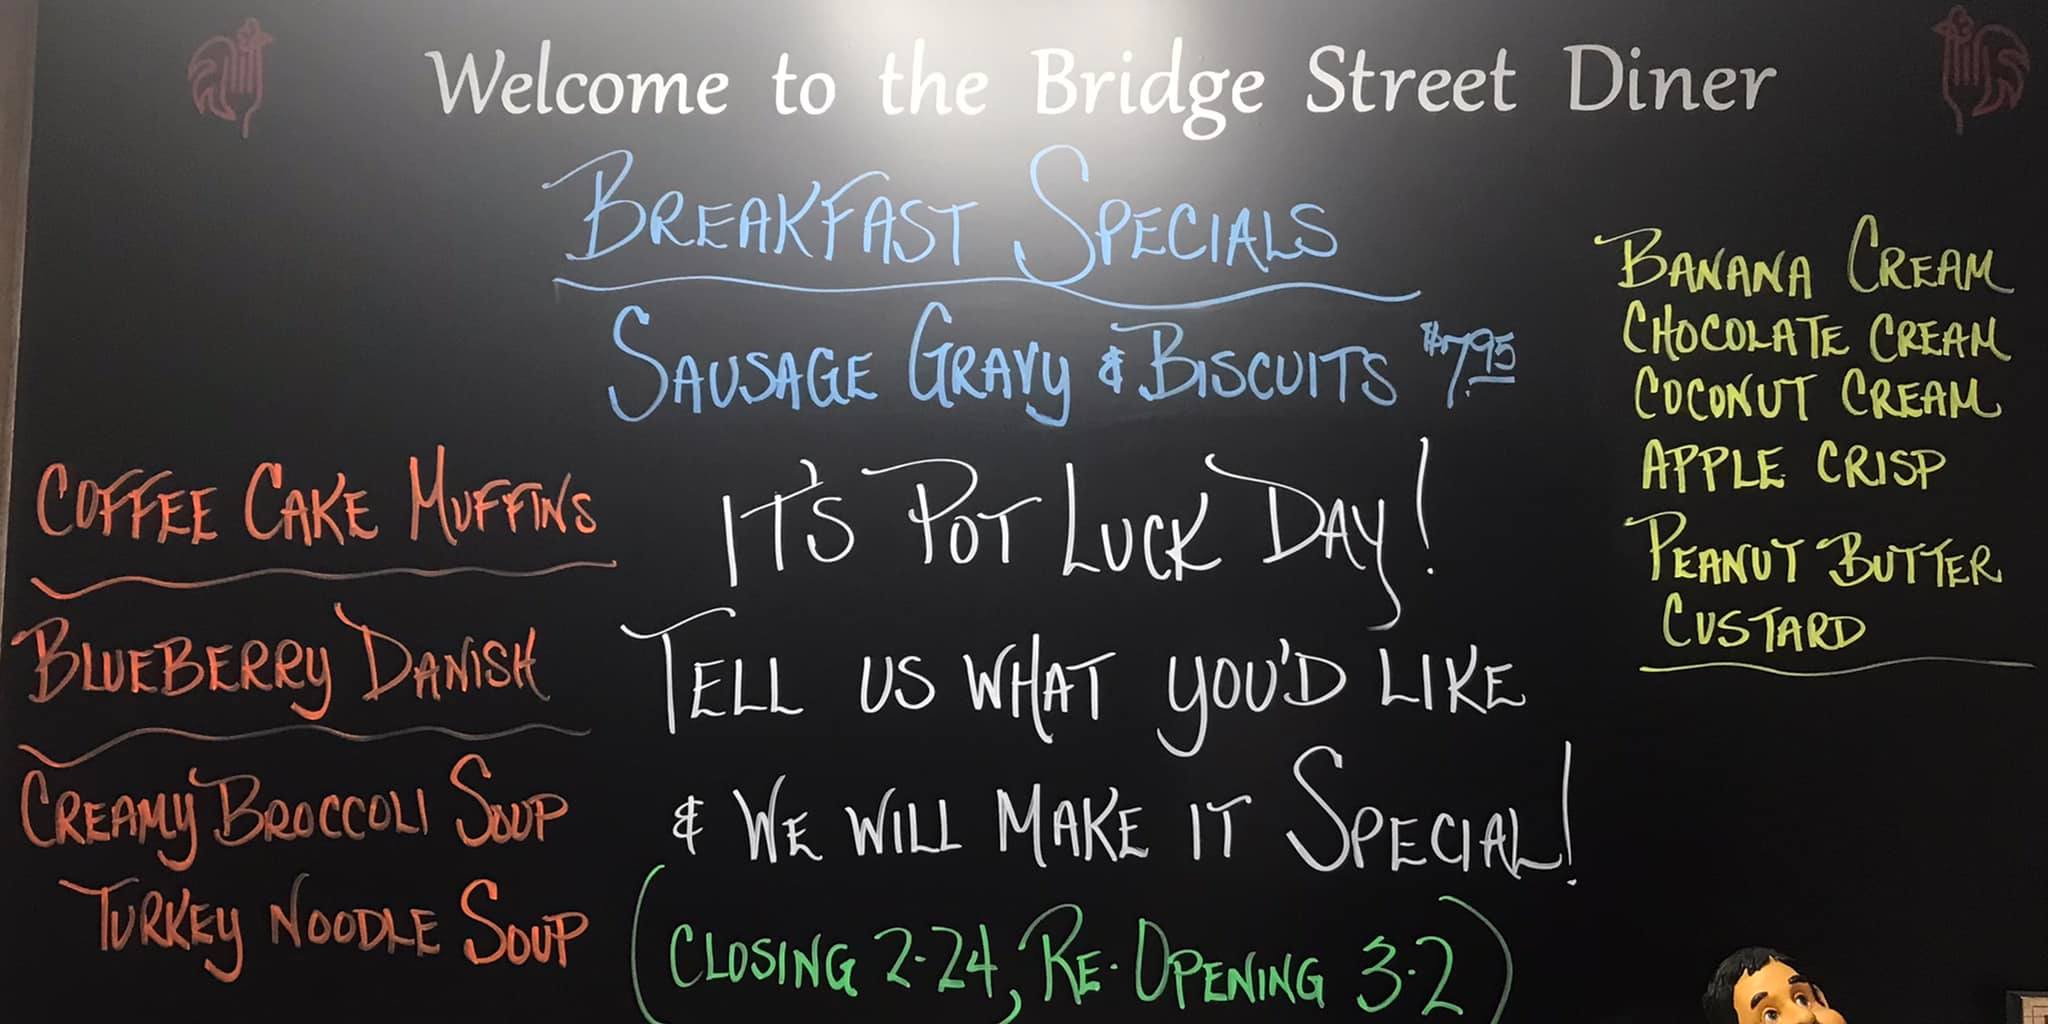 Welcome to the Bridge Street Diner
BREAKFAST SPECIALS
SAUSAGE GRAVY & BISCUITS $7.95
COFFEE CAKE MUFFINS
BLUEBERRY DANISH
CREAMY BROCCOLI SOUP
TURKEY NOODLE SOUP
IT'S POT LUCK DAY!
TELL US WHAT YOU'D LIKE
& WE WILL MAKE IT SPECIAL!
(CLOSING 2-24, RE-OPENING 3-2)
BANANA CREAM
CHOCOLATE CREAM
COCONUT CREAM
APPLE CRISP
PEANUT BUTTER
CUSTARD